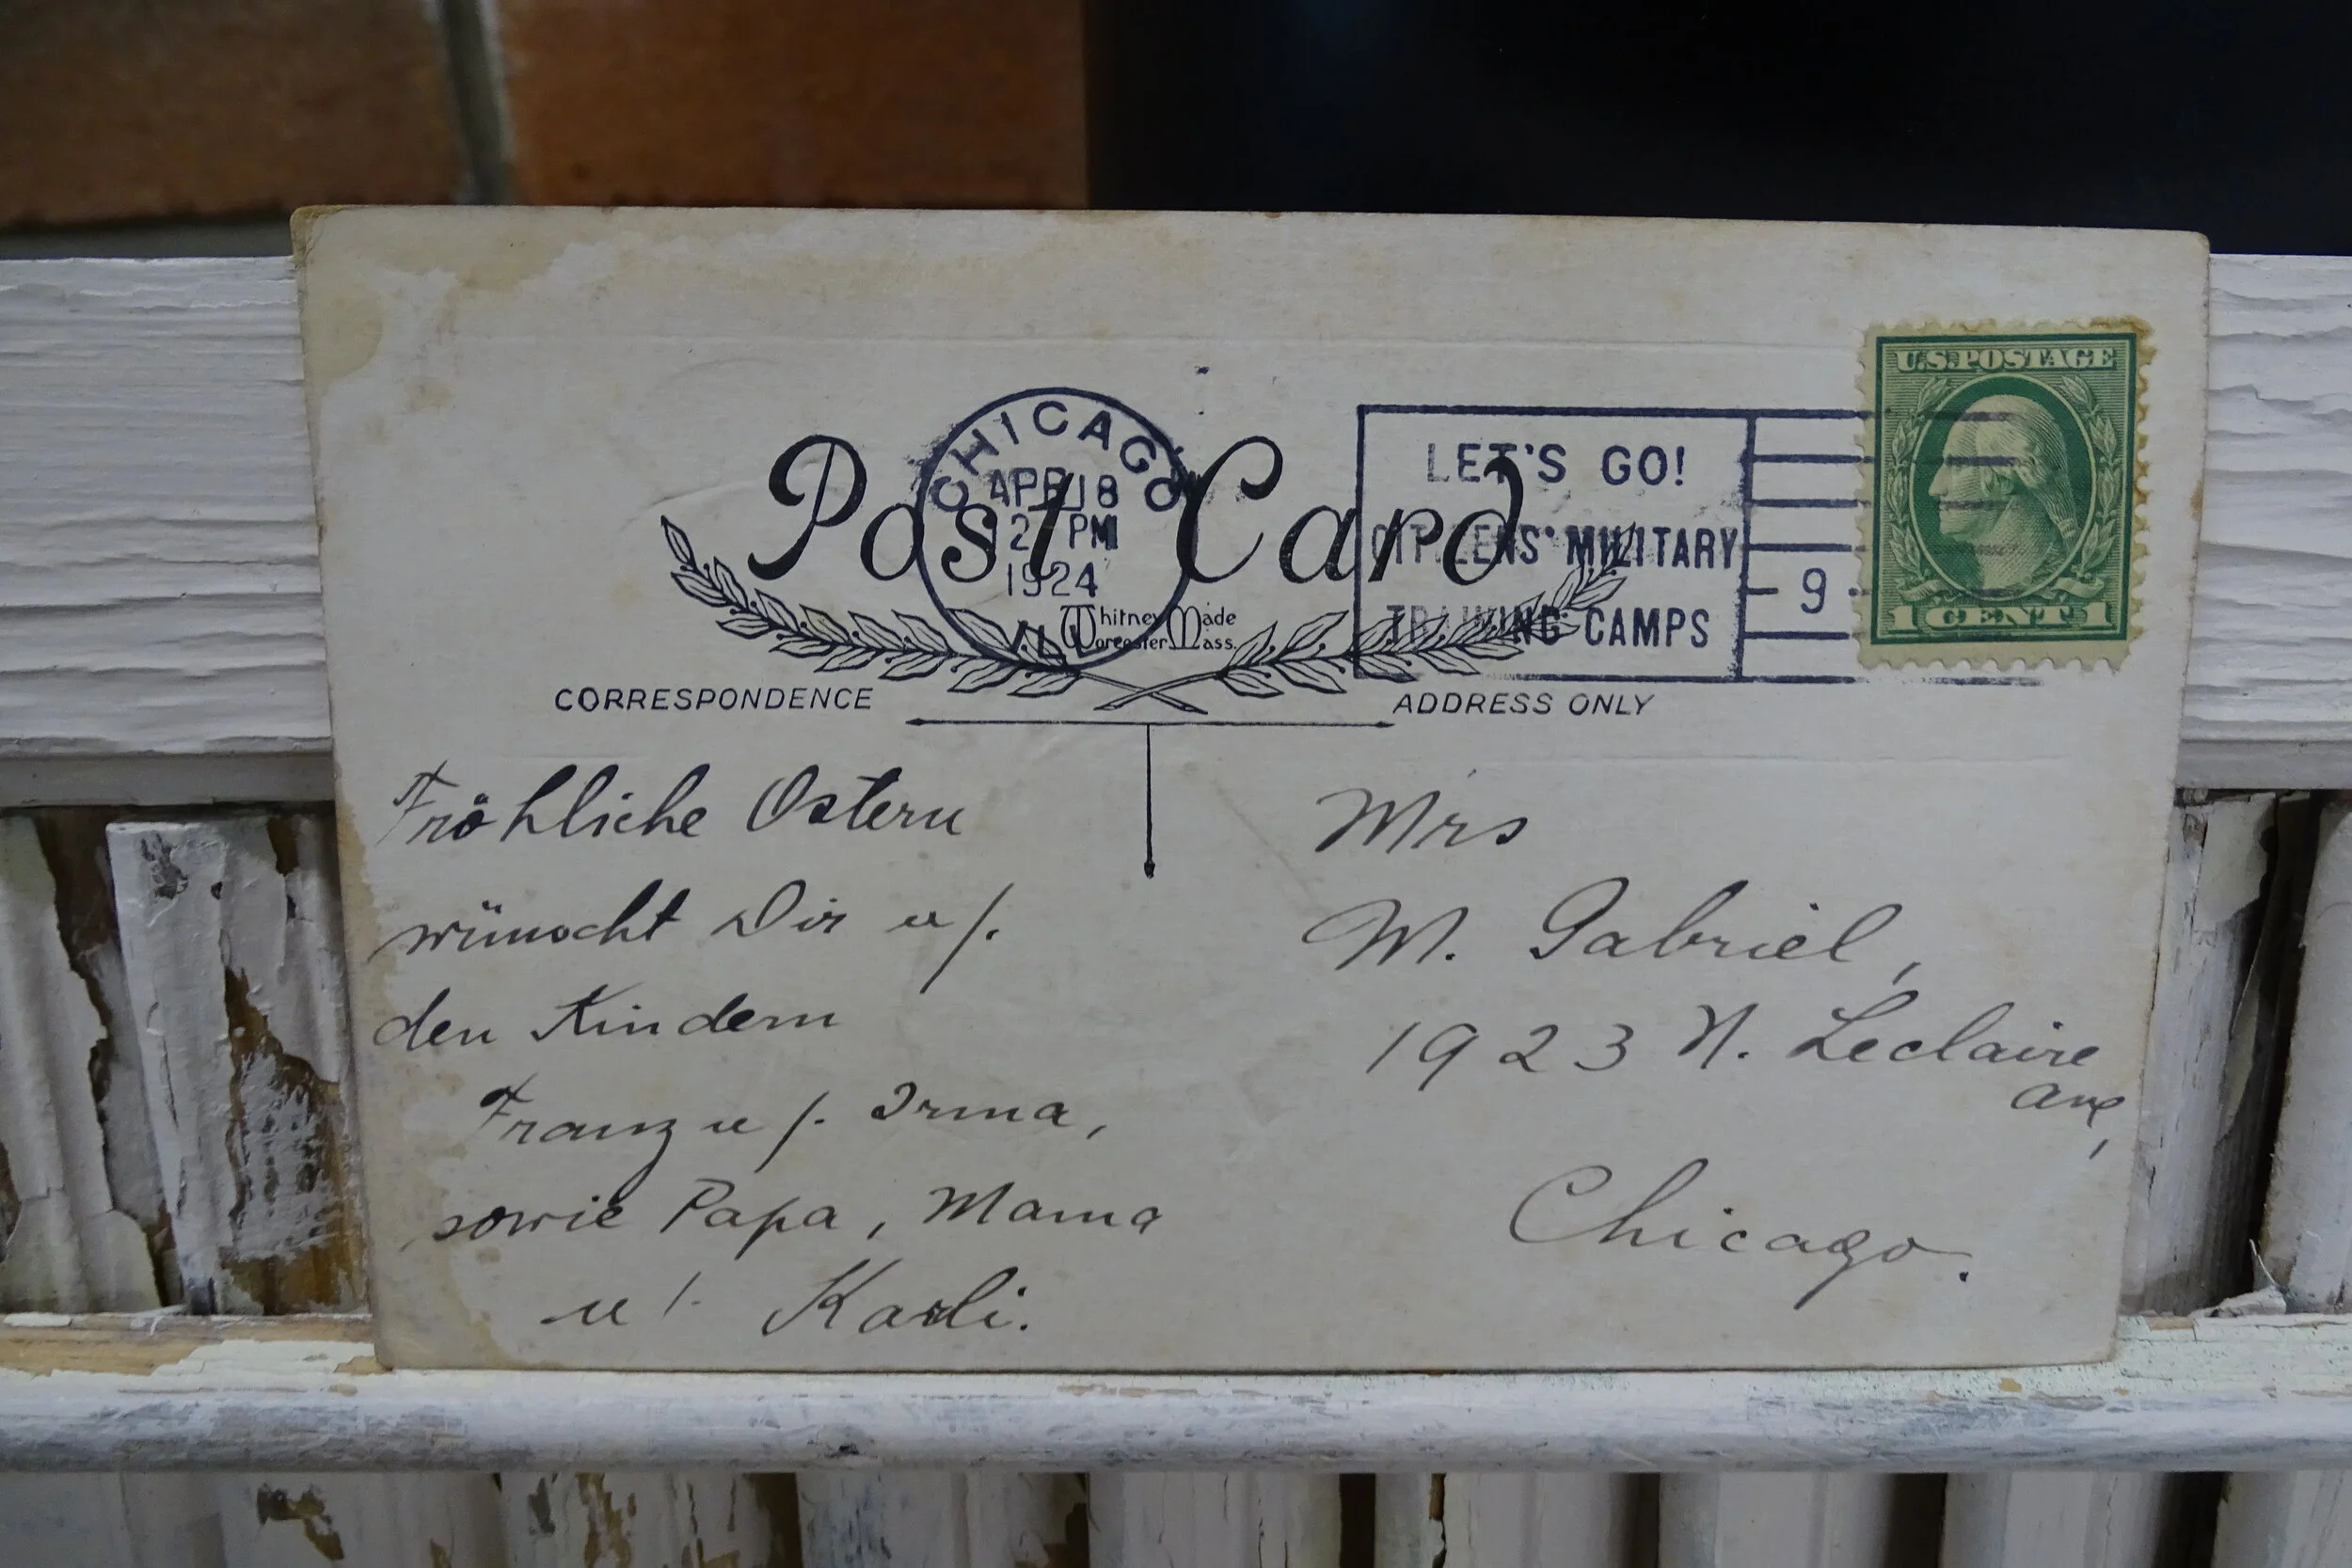 CHICAGO
APR 18
12 PM
1924
ILL
LET'S GO!
CITIZENS' MILITARY
TRAINING CAMPS
9
U.S. POSTAGE
1 CENT 1
Post Card
Whitney Made
Worcester Mass.
CORRESPONDENCE
ADDRESS ONLY
Fröhliche Ostern
wünscht Dir u/.
den Kindern
Franz u/. Irma,
sowie Papa, Mama
u/. Karli.
Mrs
M. Gabriel,
1923 N. Leclaire
ave,
Chicago.